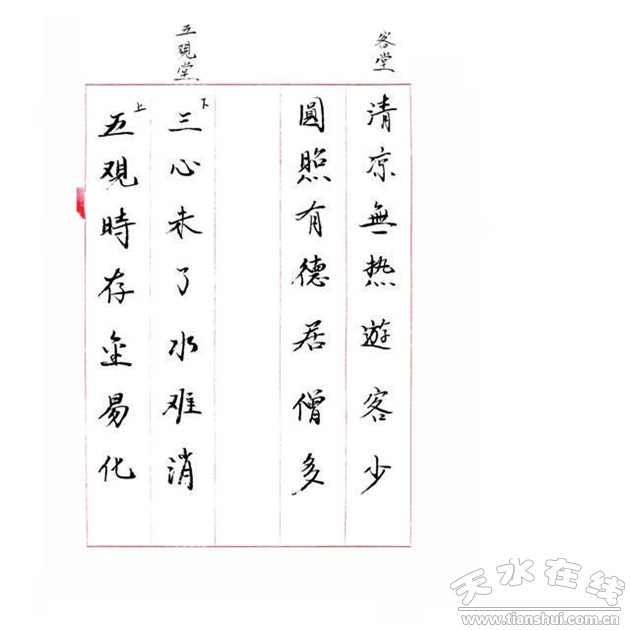 客堂
清凉無热遊客少
圓照有德居僧多
五觀堂
下
三心未了水难消
上
五觀時存金易化
天水在线
www.tianshui.com.cn